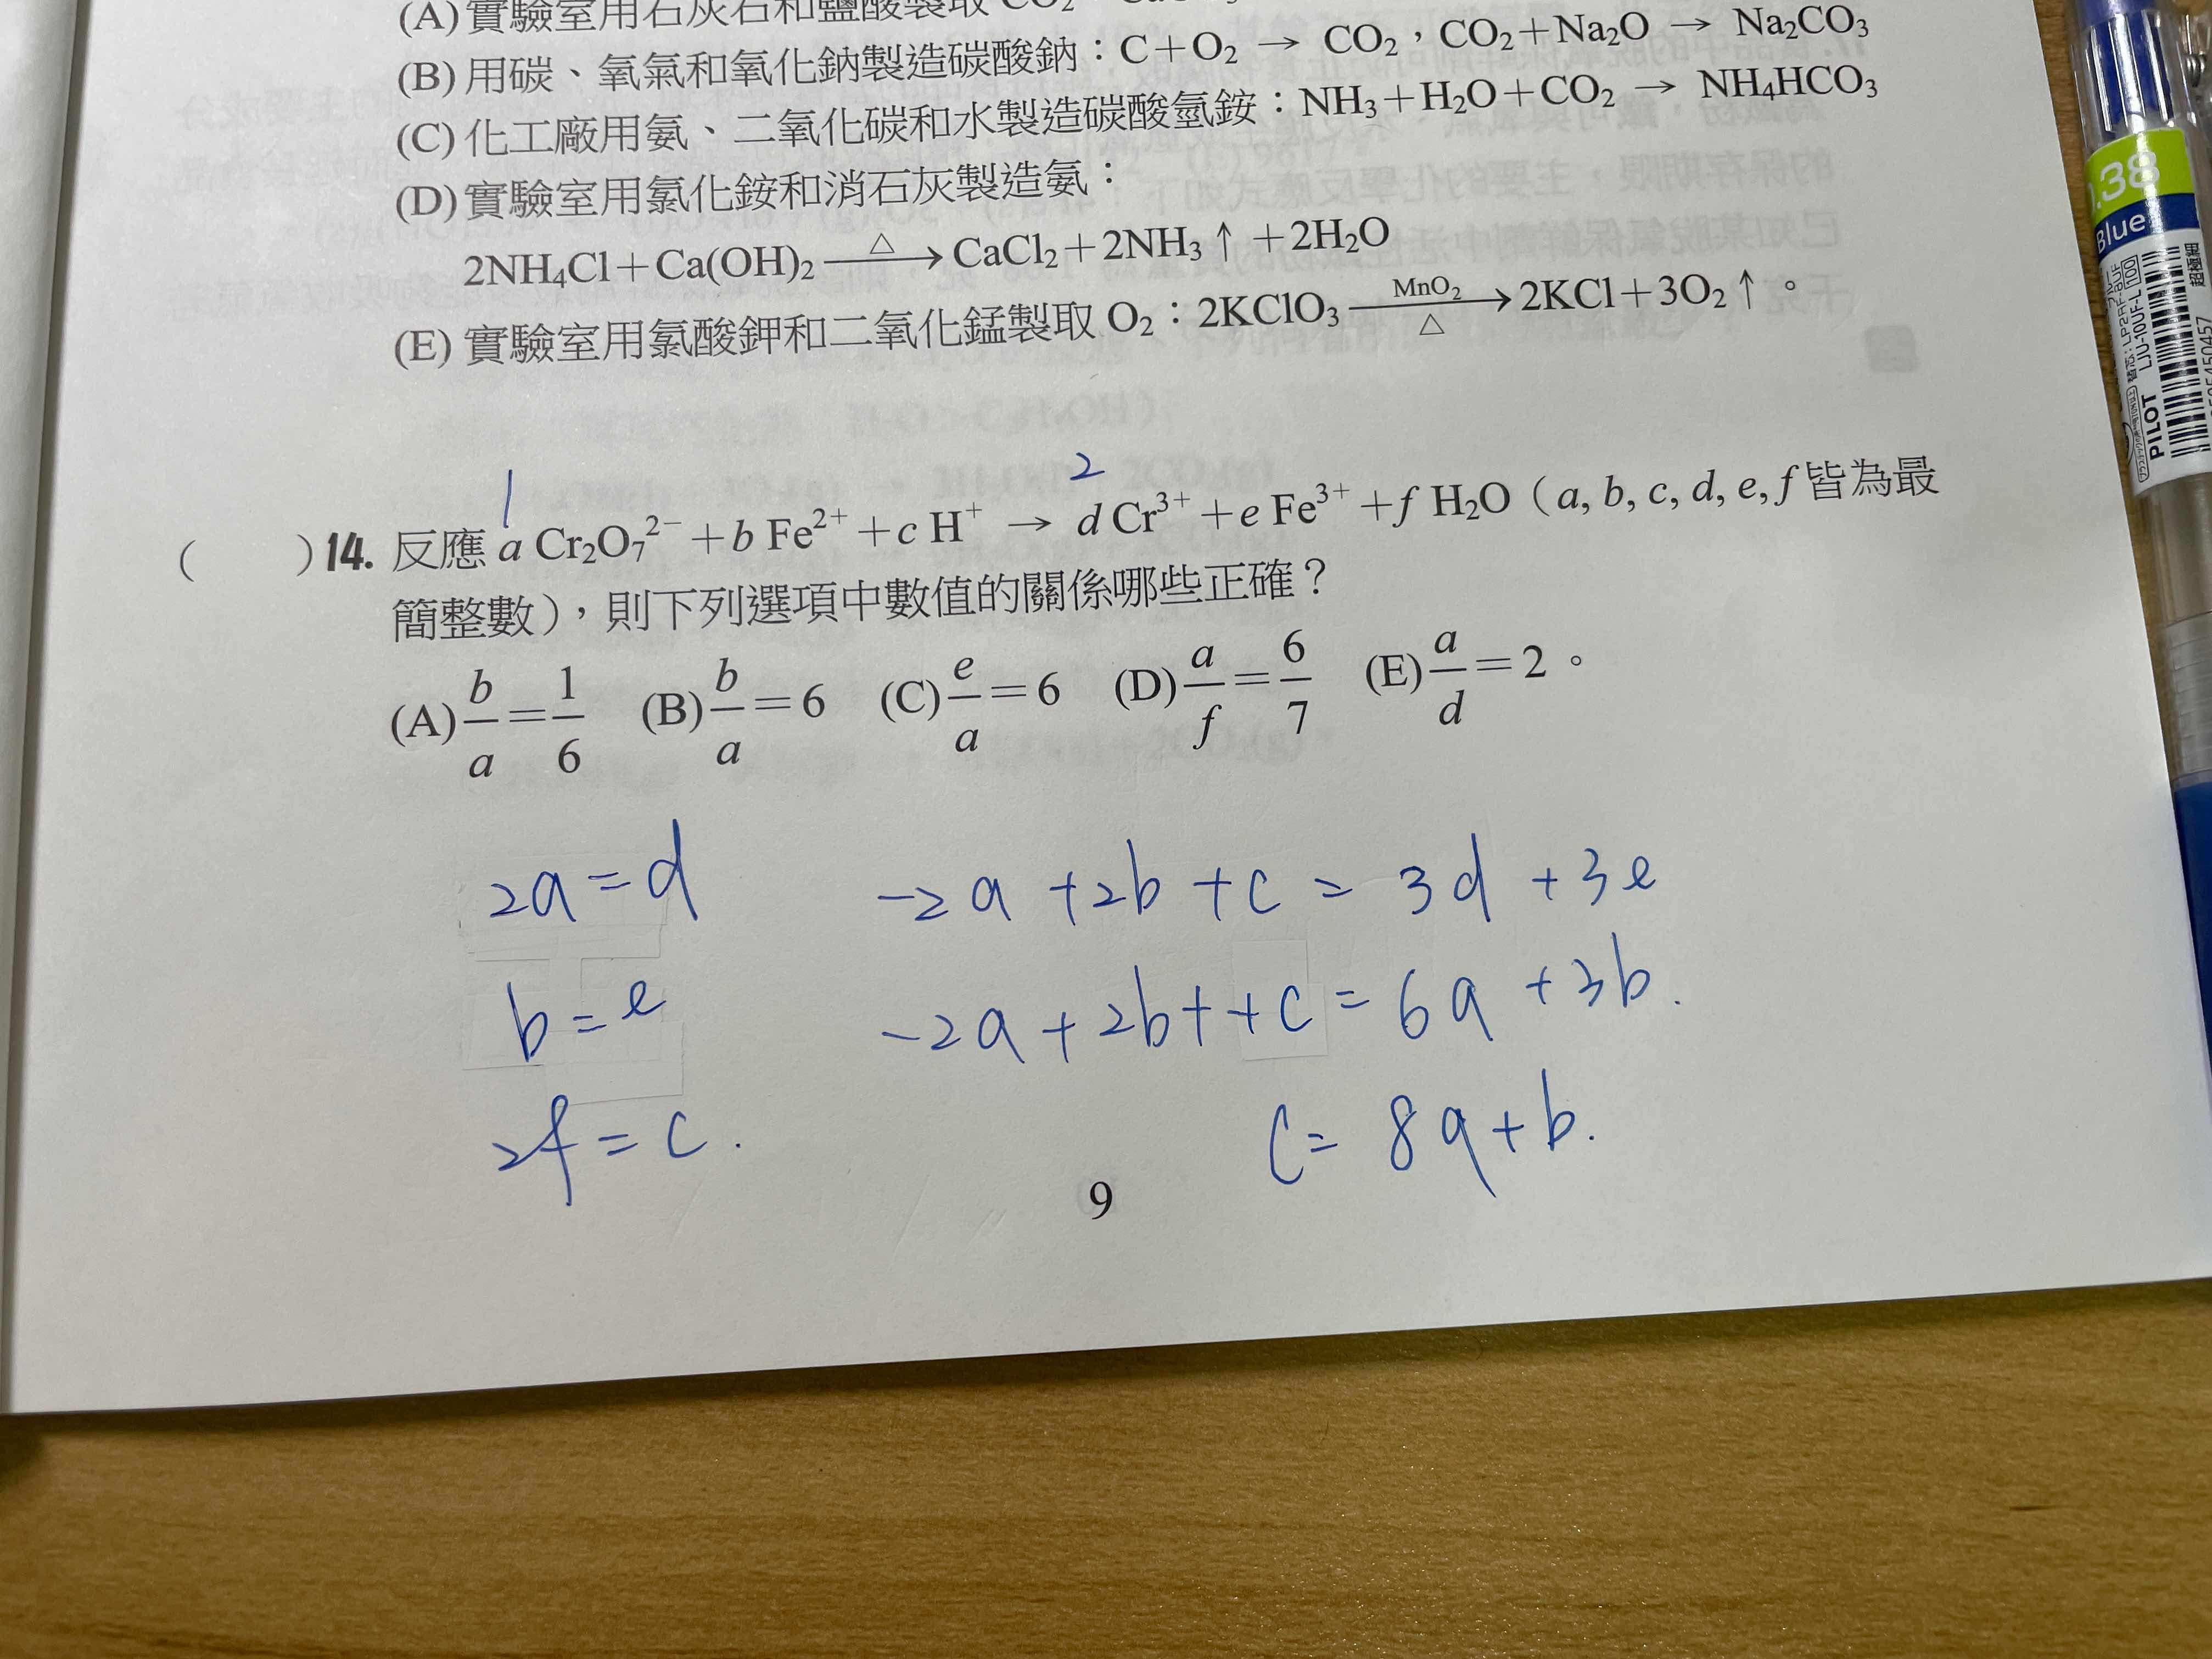 (A) 實驗室用石灰石和鹽酸製取 CO₂
(B) 用碳、氧氣和氧化鈉製造碳酸鈉：C＋O₂ → CO₂，CO₂＋Na₂O → Na₂CO₃
(C) 化工廠用氨、二氧化碳和水製造碳酸氫銨：NH₃＋H₂O＋CO₂ → NH₄HCO₃
(D) 實驗室用氯化銨和消石灰製造氨：
2NH₄Cl＋Ca(OH)₂ —△→ CaCl₂＋2NH₃↑＋2H₂O
(E) 實驗室用氯酸鉀和二氧化錳製取 O₂：2KClO₃ —MnO₂/△→ 2KCl＋3O₂↑。
1 2
(　　)14. 反應 a Cr₂O₇²⁻＋b Fe²⁺＋c H⁺ → d Cr³⁺＋e Fe³⁺＋f H₂O（a, b, c, d, e, f 皆為最
簡整數），則下列選項中數值的關係哪些正確？
(A) b/a＝1/6 (B) b/a＝6 (C) e/a＝6 (D) a/f＝6/7 (E) a/d＝2。
2a = d
-2a + 2b + c = 3d + 3e
b = e
-2a + 2b + + c = 6a + 3b.
2f = c.
c = 8a + b.
9
.38
Blue
PILOT
LJU-10UF-L
100